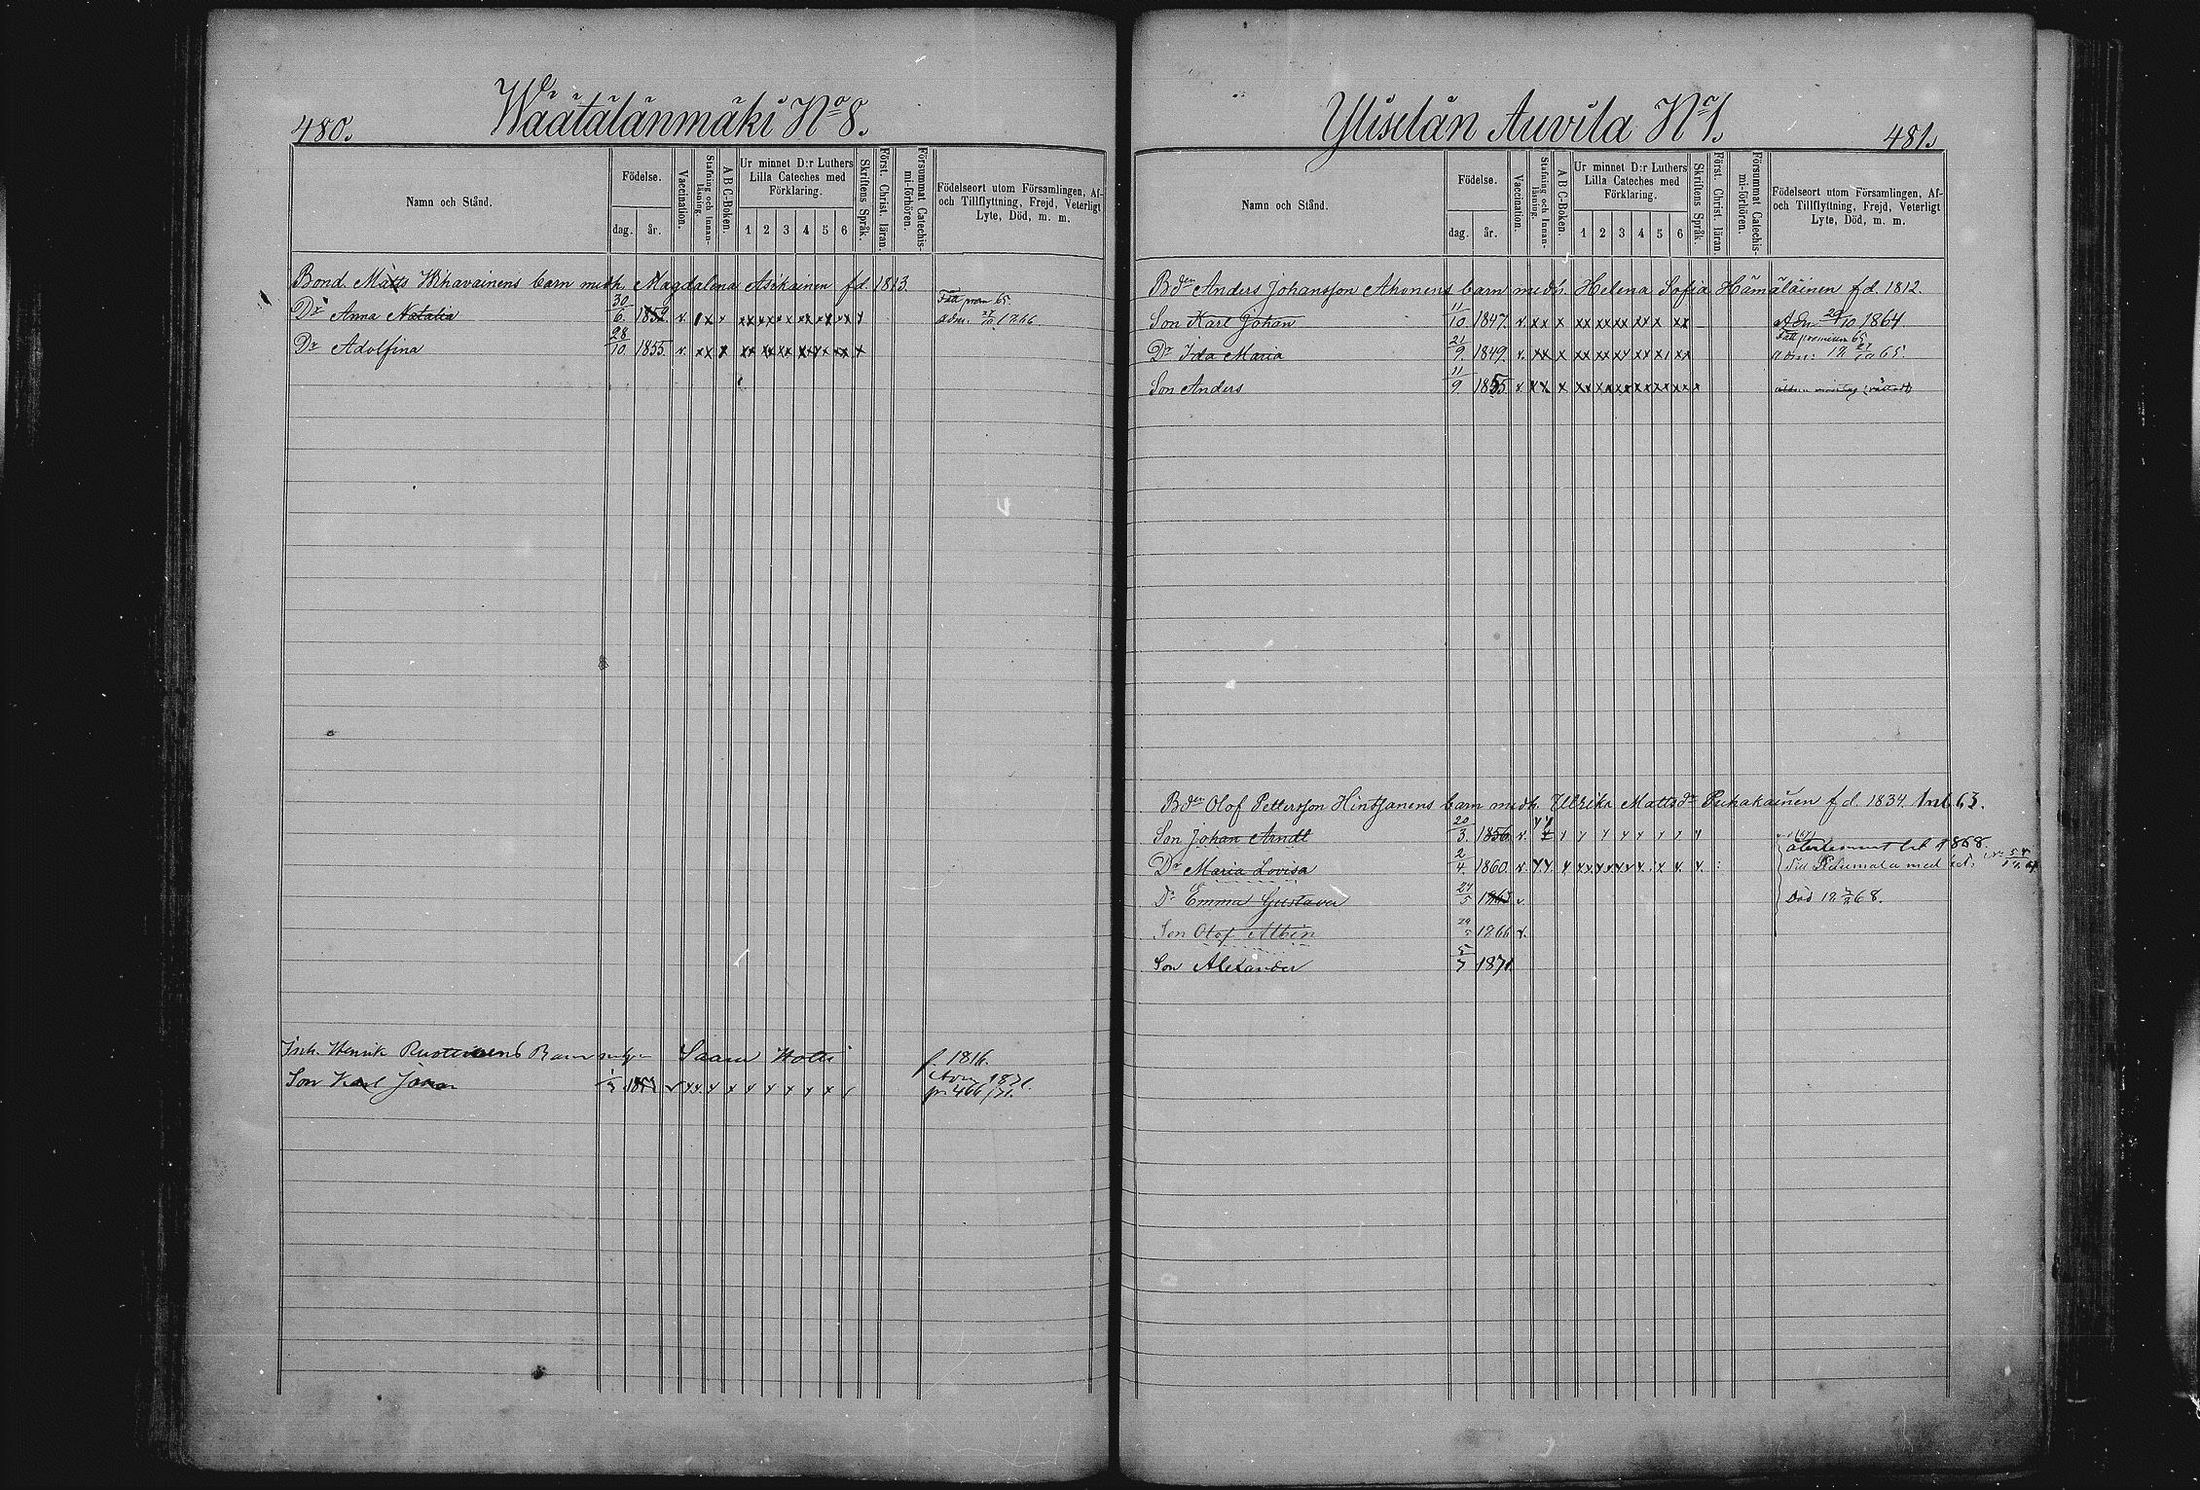 480.
Wäätälänmäki No 8.
Namn och Stånd.
Födelse.
dag.
år.
Vaccination.
Stafning och Innan-läsning.
A B C-Boken.
Ur minnet D:r Luthers Lilla Cateches med Förklaring.
1 2 3 4 5 6
Skriftens Språk.
Först. Christ. läran.
Försummat Catechis-mi-förhören.
Födelseort utom Församlingen, Af- och Tillflyttning, Frejd, Veterligt Lyte, Död, m. m.
Bond. Matts Wihavainens barn medh. Magdalena Asikainen f.d. 1813.
Dr Anna Natalia 30/6. 1852. v. x x x xx xx x x x x x x Fått prem 65.
adm. 27/10 1866.
Dr Adolfina 28/10. 1855. v. xx x xx xx xx xx x x x
Inh. Henrik Ruotsinens Barn Saara Hotti f. 1816.
Son Karl Johan v x x x x x x x x x 1871
pr. 466/71.
Yliselän Auvila No 1.
481.
Namn och Stånd.
Födelse.
dag.
år.
Vaccination.
Stafning och Innan-läsning.
A B C-Boken.
Ur minnet D:r Luthers Lilla Cateches med Förklaring.
1 2 3 4 5 6
Skriftens Språk.
Först. Christ. läran.
Försummat Catechis-mi-förhören.
Födelseort utom Församlingen, Af- och Tillflyttning, Frejd, Veterligt Lyte, Död, m. m.
Bdn Anders Johansson Ahonens barn medh. Helena Sofia Hämäläinen f.d. 1812.
Son Karl Johan 11/10. 1847. v. x x x xx xx xx xx x xx Adm 1864.
Dr Ida Maria 21/9. 1849. v. xx x xx xx xx xx x xx Fått premium 65
adm: 18 27/10 65
Son Anders 11/9. 1855 v xx x xx xx xx xx xx xx x
Bdn Olof Pettersson Hintsanens barn medh. Ulrika Mattsdr Puhakainen f.d. 1834. Anl. 63.
Son Johan Arndt 20/3. 1856. v. x x x x x x x x x
Dr Maria Lovisa 2/4. 1860. v. x x x x x x x x x x x x Till med
Dr Emma Gustava 24/5 1863 v. Död 18 68.
Son Olof Albin 1866 v.
Son Alexander 5/7 1871